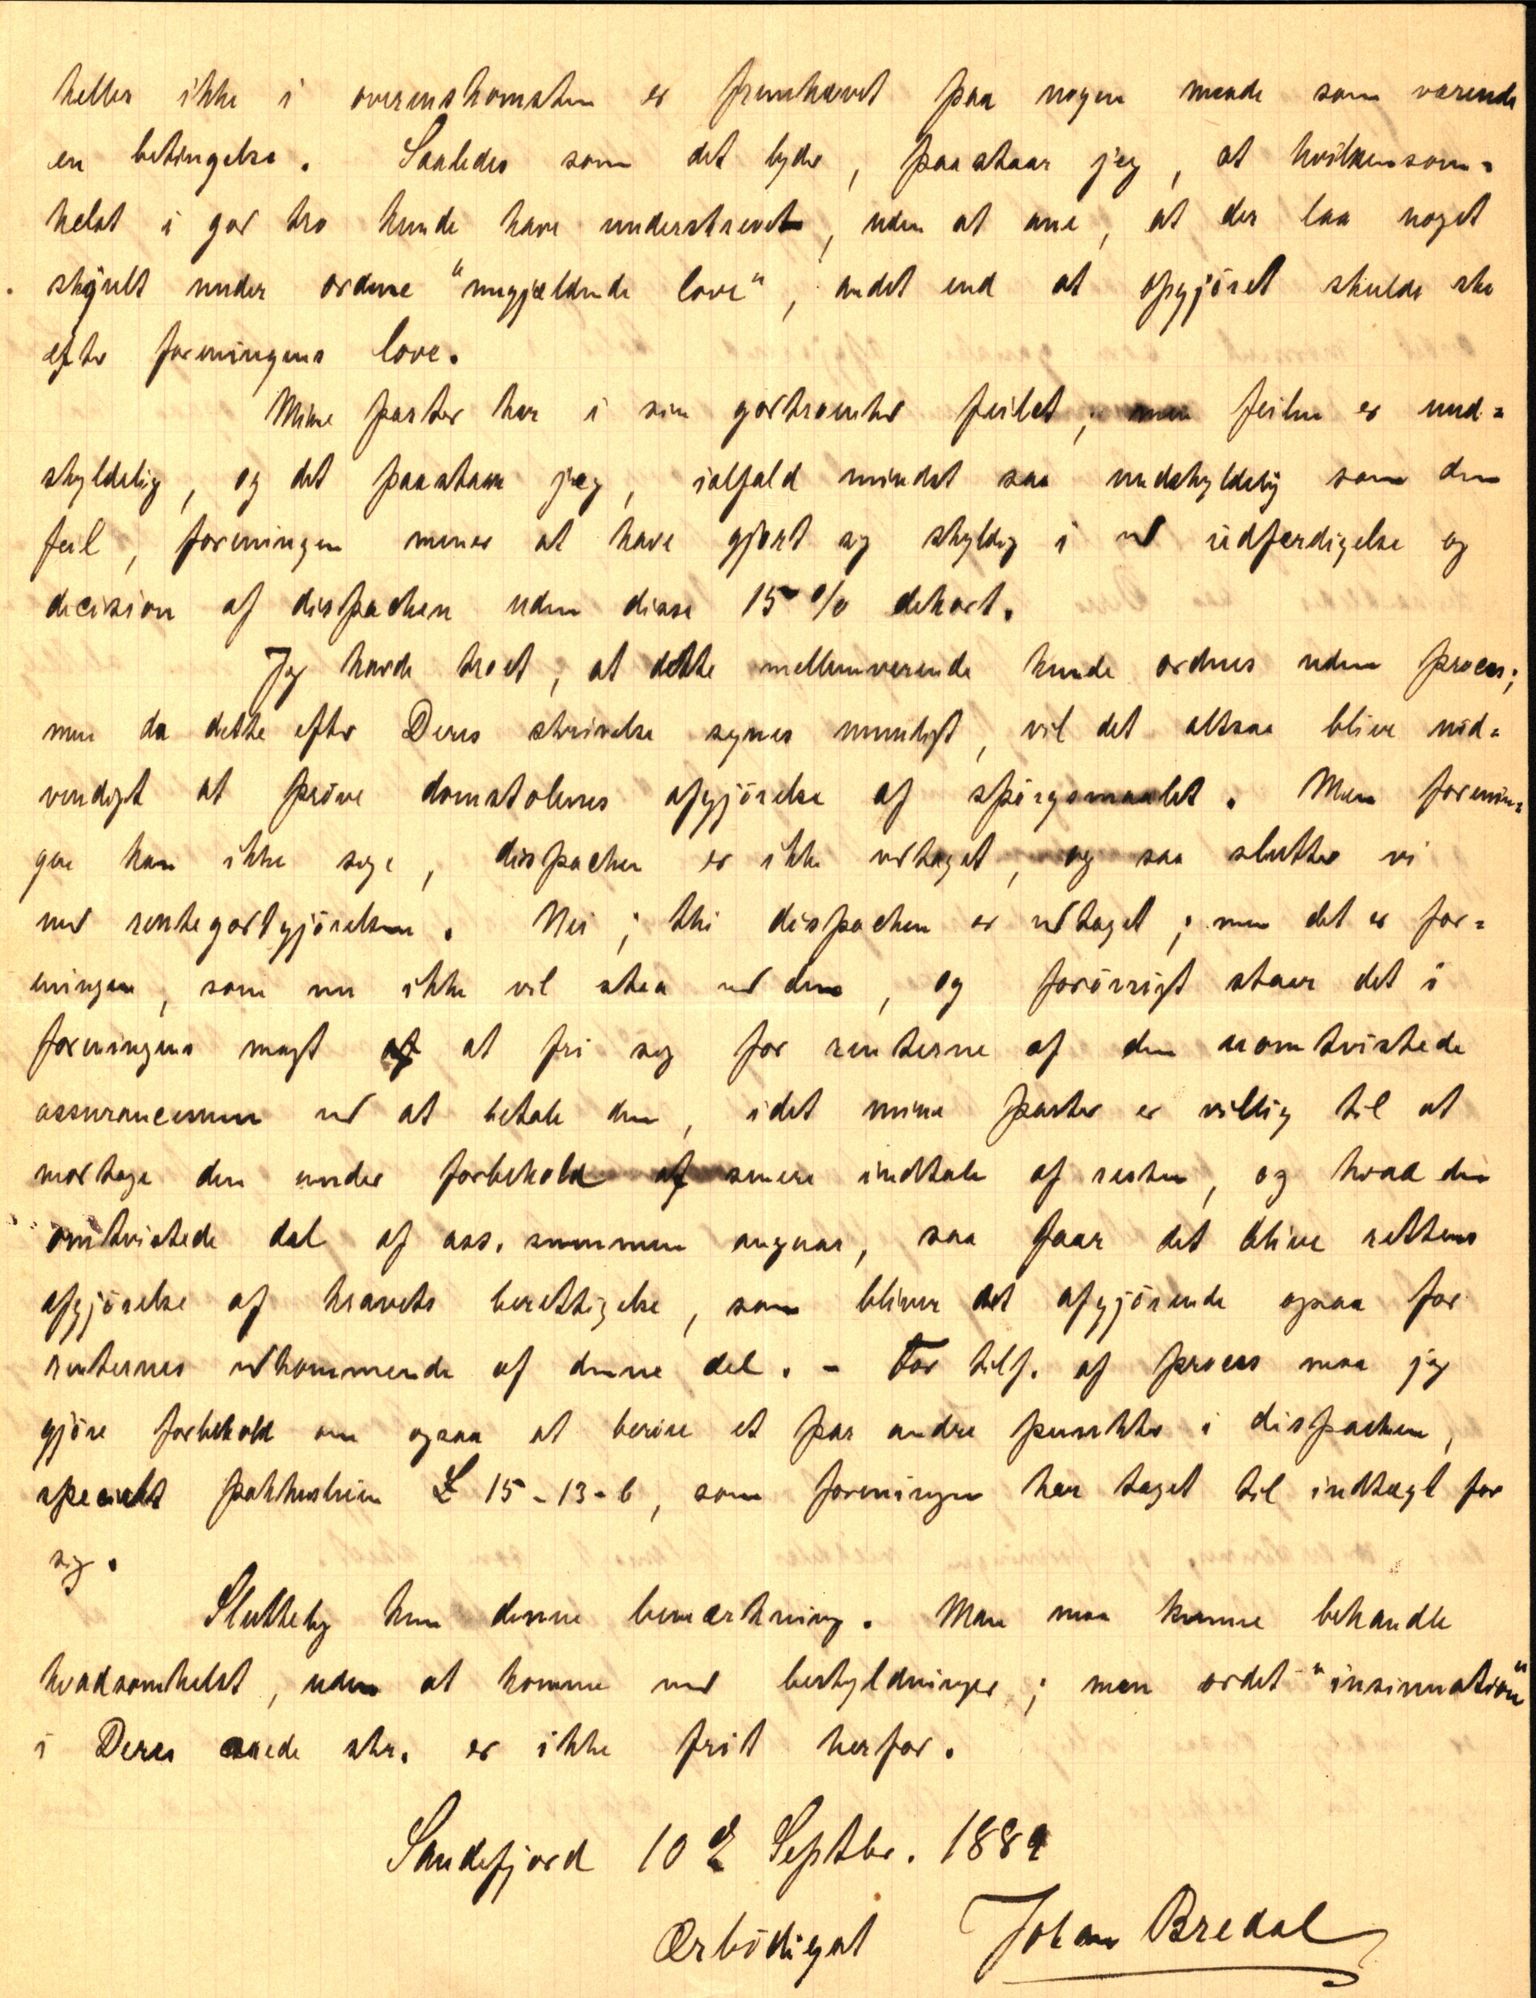 heller ikke i overenskomsten er fremhævet paa nogen maade som værende
en betingelse. Saaledes som det lyder, paastaar jeg, at hvilkensom-
helst i god tro kunde have underskrevet, uden at ane, at der laa noget
skjult under ordene "nugjældende love", andet end at opgjöret skulde ske
efter foreningens love.
Mine parter har i sin godtroenhed feilet; men feilen er und-
skyldelig, og det paastaar jeg, ialfald mindst saa undskyldelig som den
feil, foreningen mener at have gjort sig skyldig i ved udfærdigelse og
decision af dispachen uden disse 15 % dekort.
Jeg havde troet, at dette mellemværende kunde ordnes uden proces;
men da dette efter Deres skrivelse synes umuligt, vil det altsaa blive nöd-
vendigt at pröve domstolenes afgjörelse af spörgsmaalet. Men forenin-
gen kan ikke sige, dispachen er ikke vedtaget, og saa slutter vi
med rentegodtgjörelsen. Nei; thi dispachen er vedtaget; men det er for-
eningen, som nu ikke vil staa ved den, og forövrigt staar det i
foreningens magt at fri sig for renterne af den uomtvistede
assurancesum ved at betale den, idet mine parter er villig til at
modtage den under forbehold af senere indtale af resten, og hvad den
omtvistede del af ass. summen angaar, saa faar det blive rettens
afgjörelse af kravets berettigelse, som bliver det afgjörende ogsaa for
renternes vedkommende af denne del. - For tilf. af proces maa jeg
gjöre forbehold om ogsaa at beröre et par andre punkter i dispachen,
specielt pakhusleien £ 15-13-6, som foreningen har taget til indtægt for
sig.
Sluttelig kun denne bemærkning. Man maa kunne behandle
hvadsomhelst, uden at komme med beskyldninger; men ordet "insinuation"
i Deres ærede skr. er ikke frit herfor.
Sandefjord 10 Septbr. 1889
Ærbödigst Johan Bredal